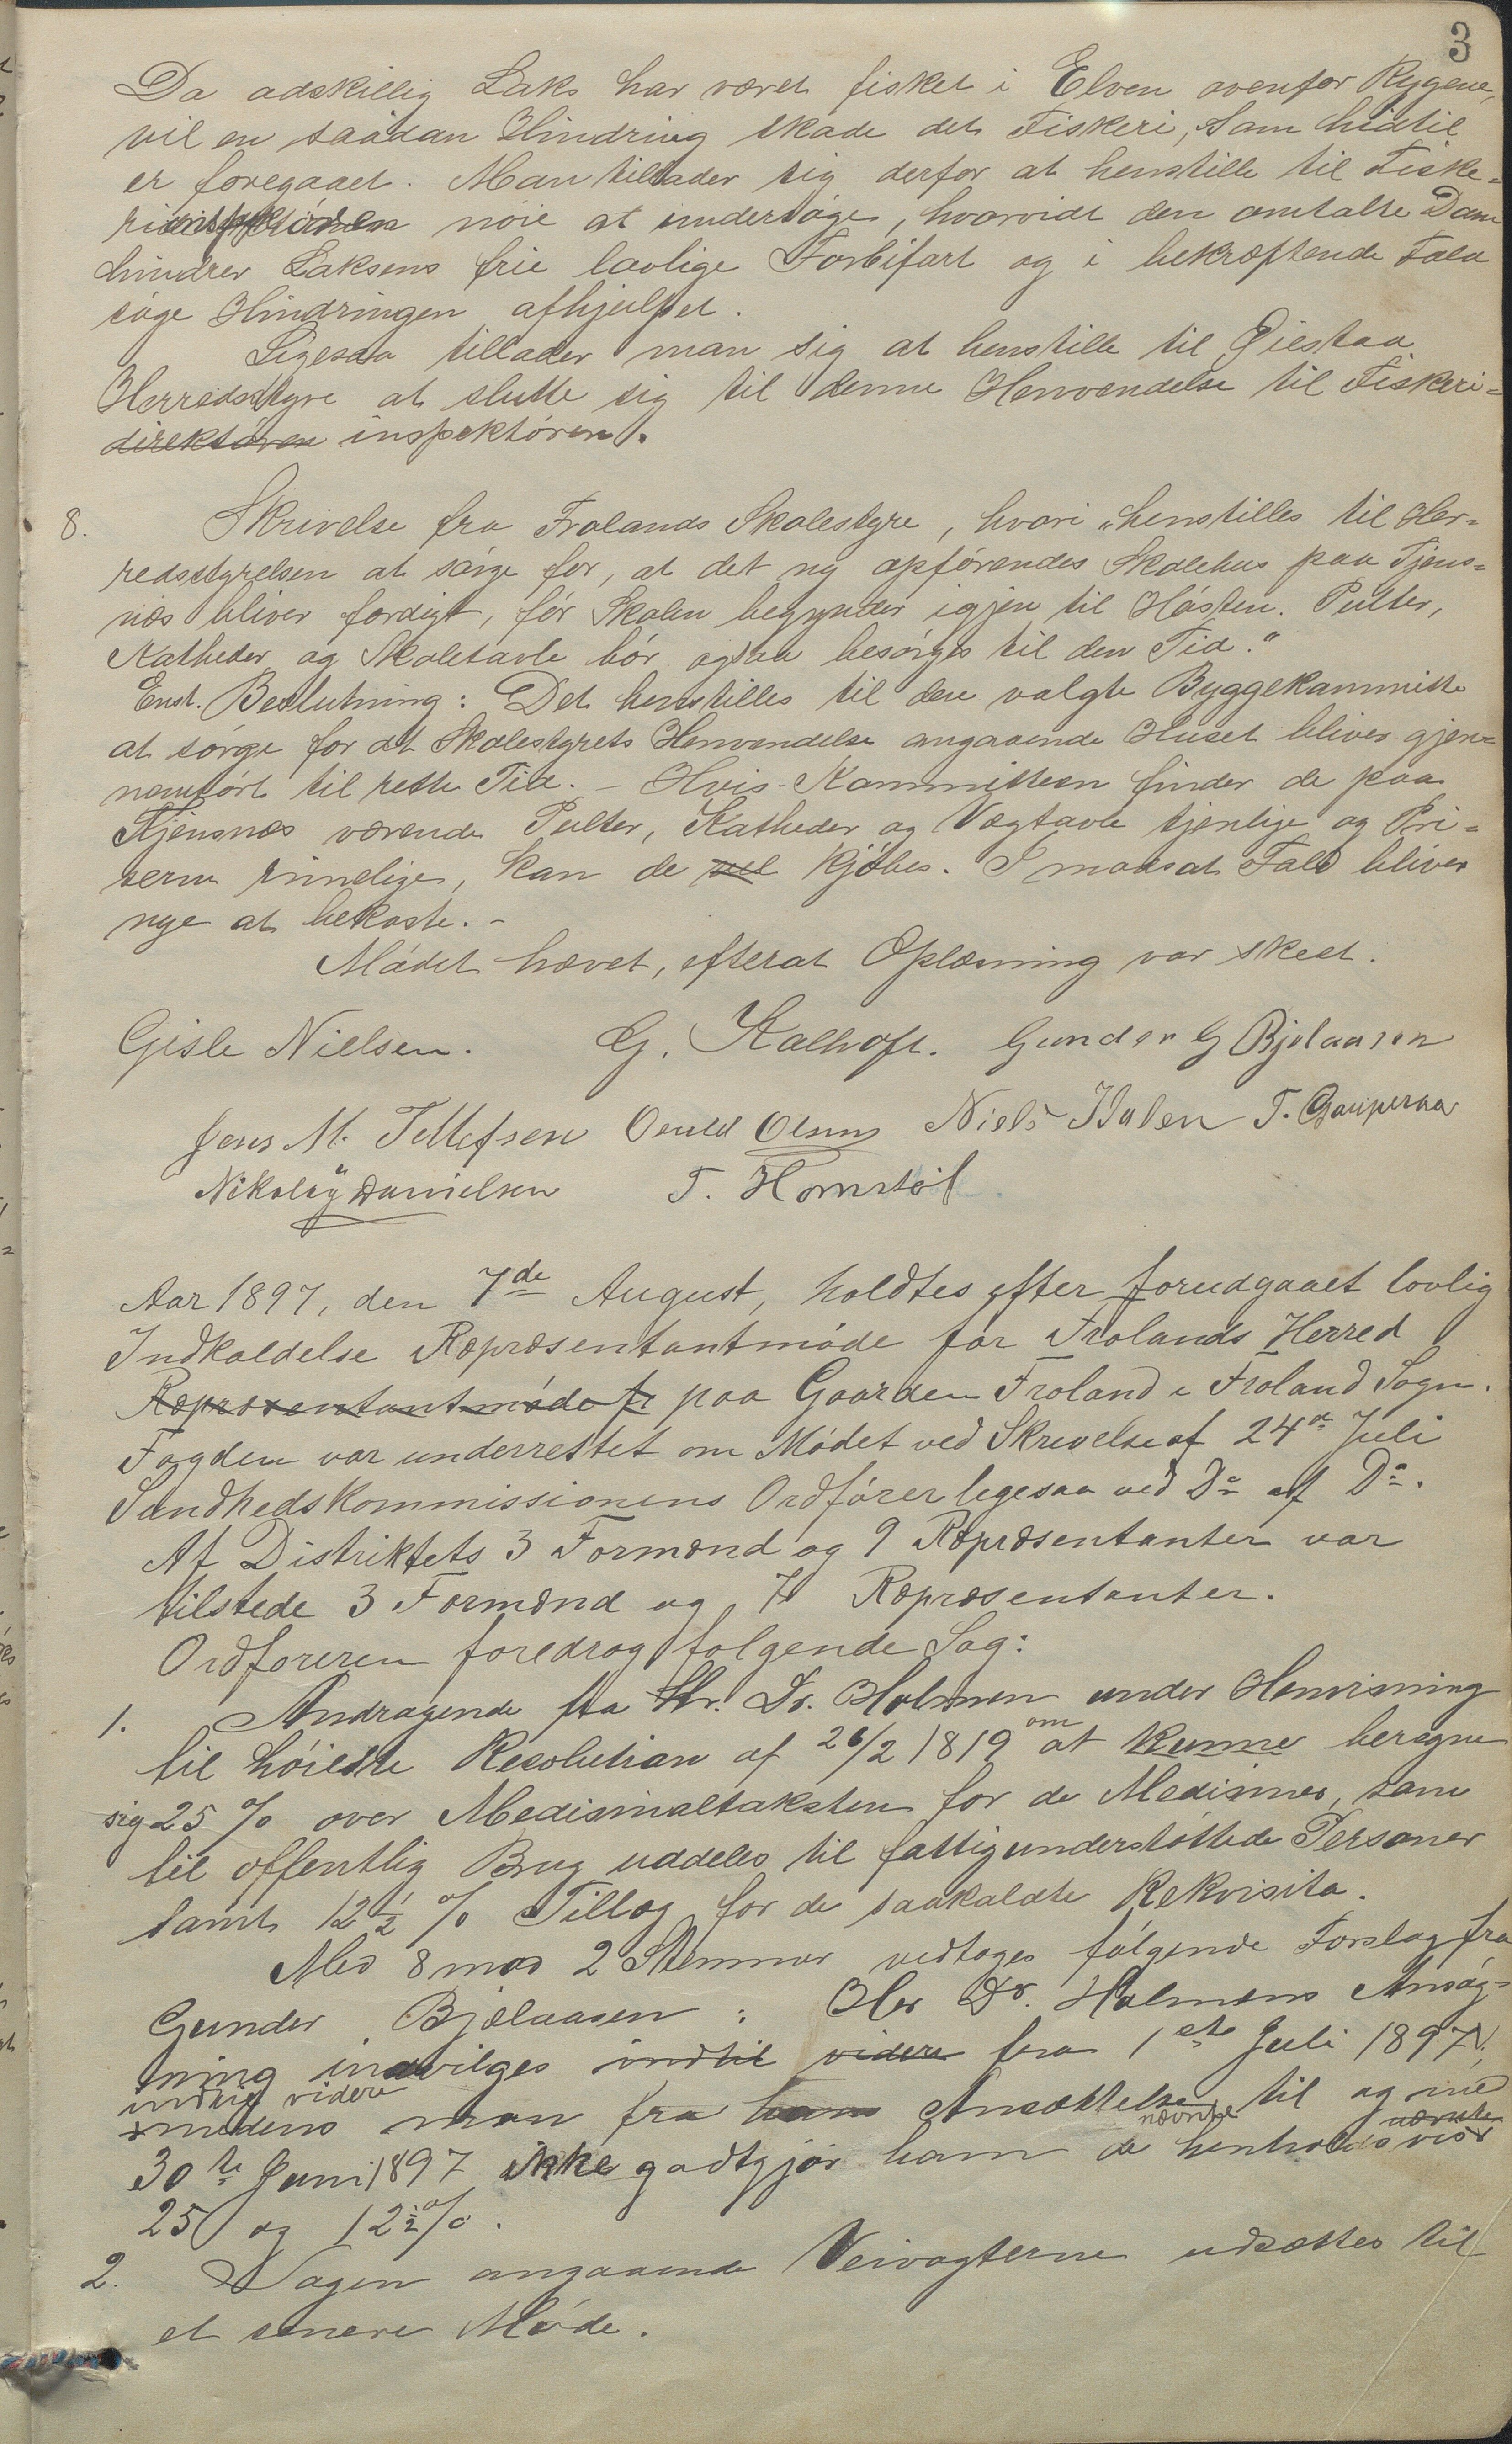 3
Da adskillig Laks har været fisket i Elven ovenfor Rygene,
vil en saadan Hindring skade det Fiskeri, som hidtil
er foregaaet. Man tillader sig derfor at henstille til Fiske-
riinspektøren nøie at undersøge, hvorvidt den omtalte Dam
hindrer Laksens frie lovlige Forbifart og i bekræftende Fald
søge Hindringen afhjulpet.
Ligesaa tillader man sig at henstille til Øiestaa
Herredsstyre at slutte sig til denne Henvendelse til Fiskeri-
direktøren inspektøren.
8. Skrivelse fra Frolands Skolestyre, hvori „henstilles til Her-
redsstyrelsen at sørge for, at det ny opførendes Skolehus paa Tjens-
næs bliver færdigt, før Skolen begynder igjen til Høsten. Pulter,
Katheder og Skoletavle bør ogsaa besørges til den Tid."
Enst. Beslutning: Det henstilles til den valgte Byggekommitte
at sørge for at Skolestyrets Henvendelse angaaende Huset bliver gjen-
nemført til rette Tid. – Hvis Kommitteen finder de paa
Tjensnæs værende Pulter, Katheder og Vægtavle tjenlige og Pri-
serne rimelige, kan de vel kjøbes. I modsat Fald bliver
nye at bekoste. –
Mødet hævet, efterat Oplæsning var skeet.
Gisle Nielsen. G. Kalhoft. Gunder G Bjelaasen
Jens M. Tellefsen Osuld Olsen Niels Hulen T. Gauperaa
Nikolay Danielsen T. Homstøl
Aar 1897, den 7de August, holdtes efter forudgaaet lovlig
Indkaldelse Repræsentantmøde for Frolands Herred
Repræsentantmøde fr paa Gaarden Froland i Froland Sogn.
Fogden var underrettet om Mødet ved Skrivelse af 24de Juli
Sundhedskommissionens Ordfører ligesaa ved Do af Do.
Af Distriktets 3 Formænd og 9 Repræsentanter var
tilstede 3 Formænd og 7 Repræsentanter.
Ordføreren foredrog følgende Sag:
1. Andragende fra Hr. Dr. Holmen under Henvisning
til høieste Resolution af 26/2 1819 om at kunne beregne
sig 25 % over Medisinaltaksten for de Medisiner, som
til offentlig Brug uddeles til fattigunderstøttede Personer
samt 12 1/2 % Tillæg for de saakaldte Rekvisita.
Med 8 mod 2 Stemmer vedtoges følgende Forslag fra
Gunder Bjelaasen: Her Dr. Holmens Ansøg-
ning indvilges indtil videre fra 1ste Juli 1897,
indtil videre
imedens man fra hans Ansættelse til og med
30te Juni 1897 ikke godtgjør ham de nævnte henholdsvis nævnte
25 og 12 1/2 %.
2. Sagen angaaende Veivogterne udsættes til
et senere Møde.